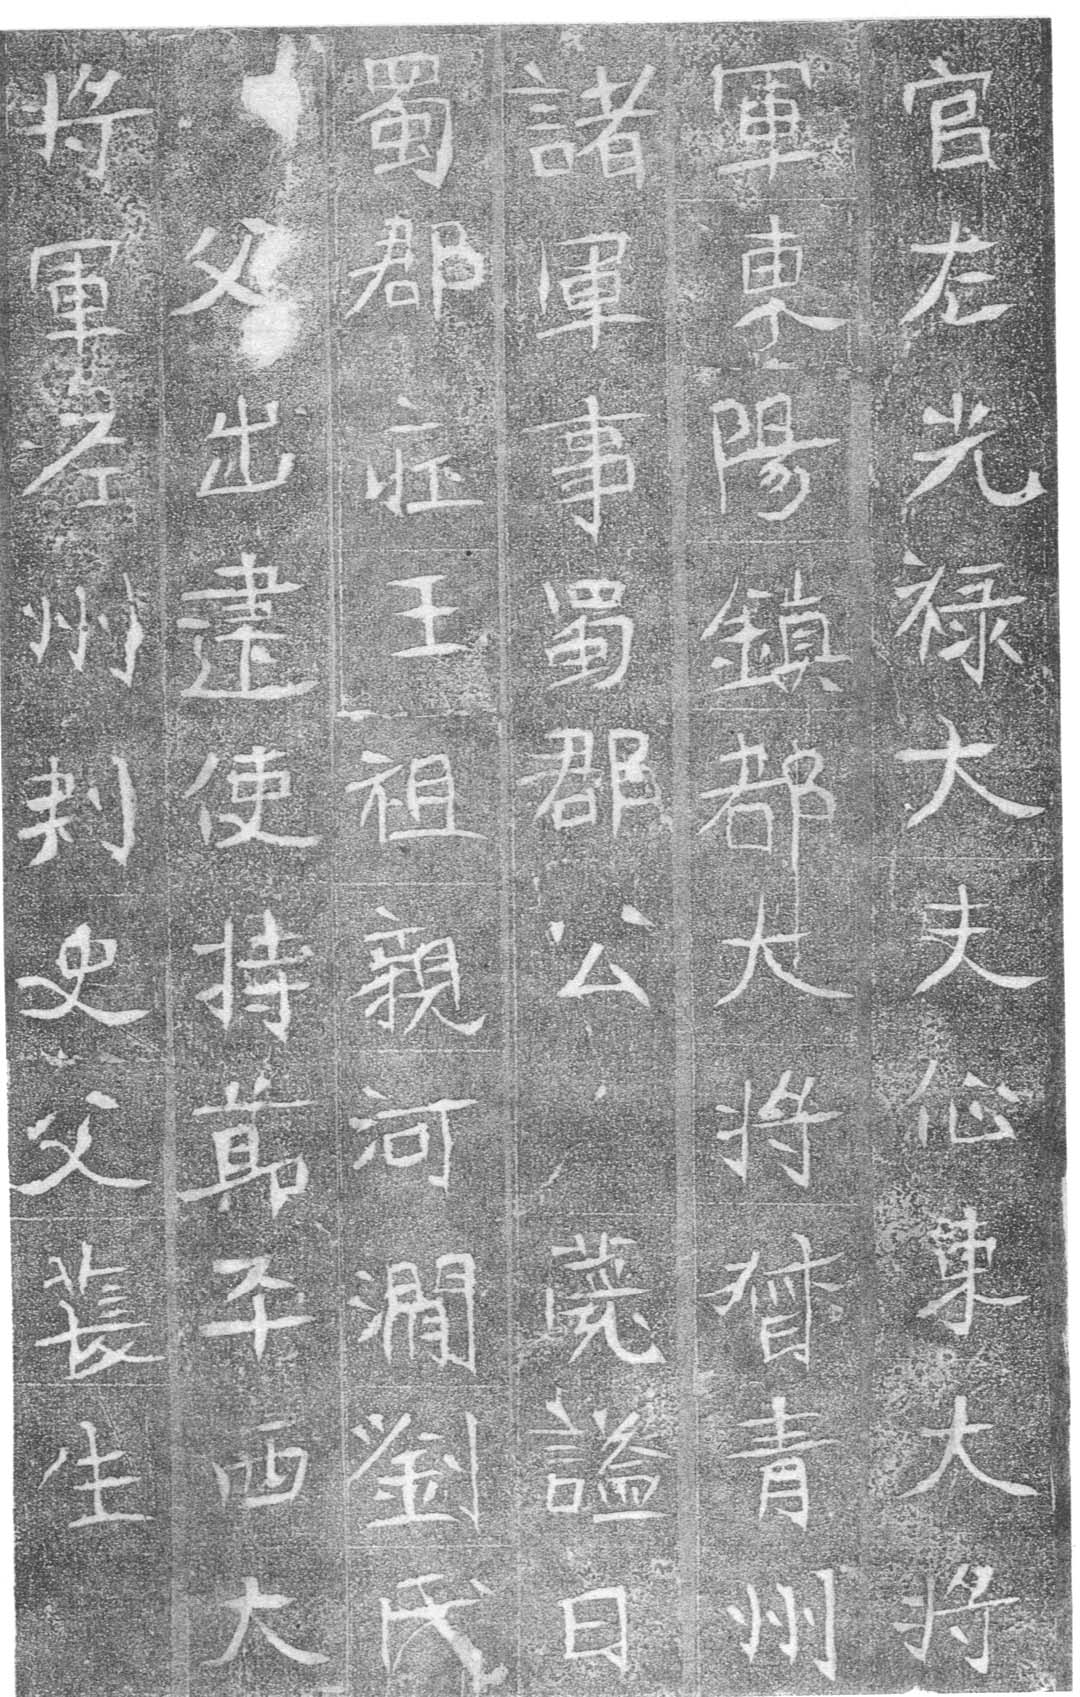 官左光禄大夫征東大將
軍東陽鎮都大將督青州
諸軍事蜀郡公薨謚曰
蜀郡莊王祖親河澗劉氏
父出建使持節平西大
將軍秦州刾史父萇生